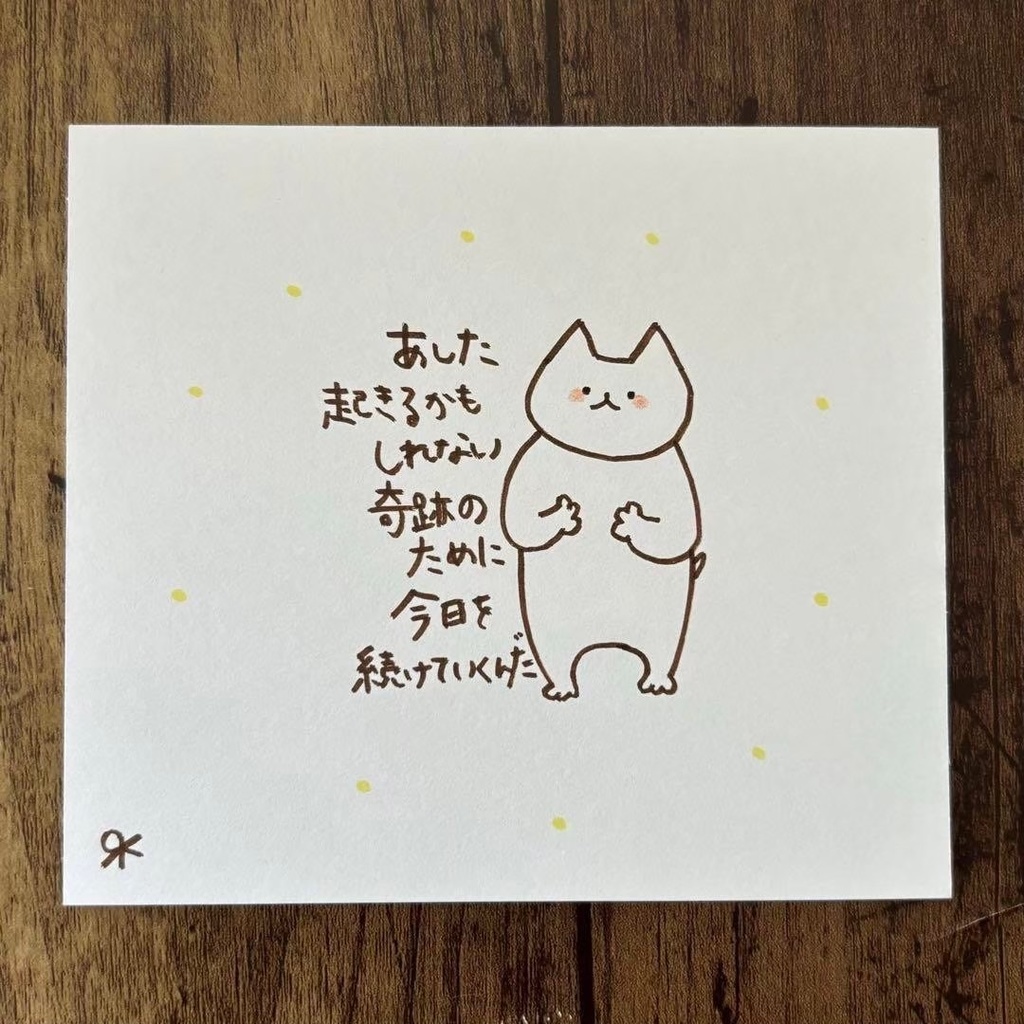 あした
起きるかも
しれない
奇跡の
ために
今日を
続けていくんだ